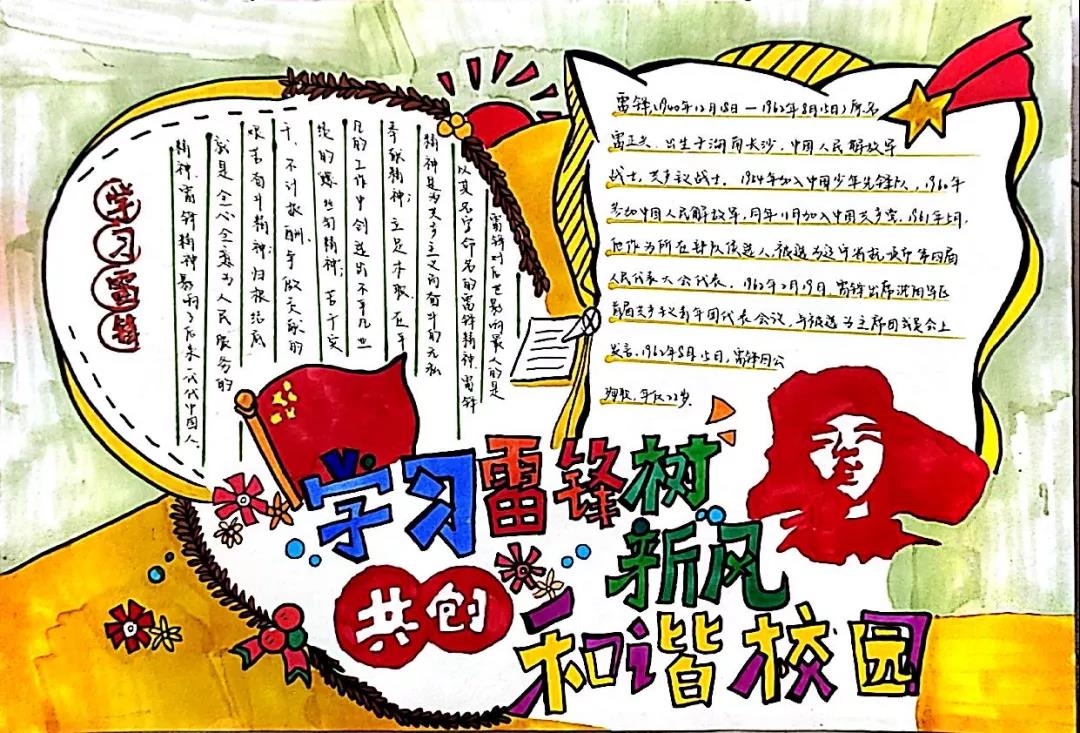 学习雷锋
雷锋对后世影响最大的是
以其名字命名的雷锋精神。雷锋
精神是为共产主义而奋斗的无私
奉献精神；立足本职、在平
凡的工作中创造出不平凡业
绩的螺丝钉精神；苦干实
干、不计报酬、争做贡献的
艰苦奋斗精神；归根结底
就是全心全意为人民服务的
精神。雷锋精神影响了后来一代代中国人。
雷锋（1940年12月18日－1962年8月15日）原名
雷正兴，出生于湖南长沙，中国人民解放军
战士，共产主义战士。1954年加入中国少年先锋队，1960年
参加中国人民解放军，同年11月加入中国共产党。1961年5月，
他作为所在部队候选人，被选为辽宁省抚顺市第四届
人民代表大会代表。1962年2月19日，雷锋出席沈阳军区
首届共产主义青年团代表会议，并被选为主席团成员会上
发言。1962年8月15日，雷锋因公
殉职，年仅22岁。
学习雷锋树
新风
共创
和谐校园